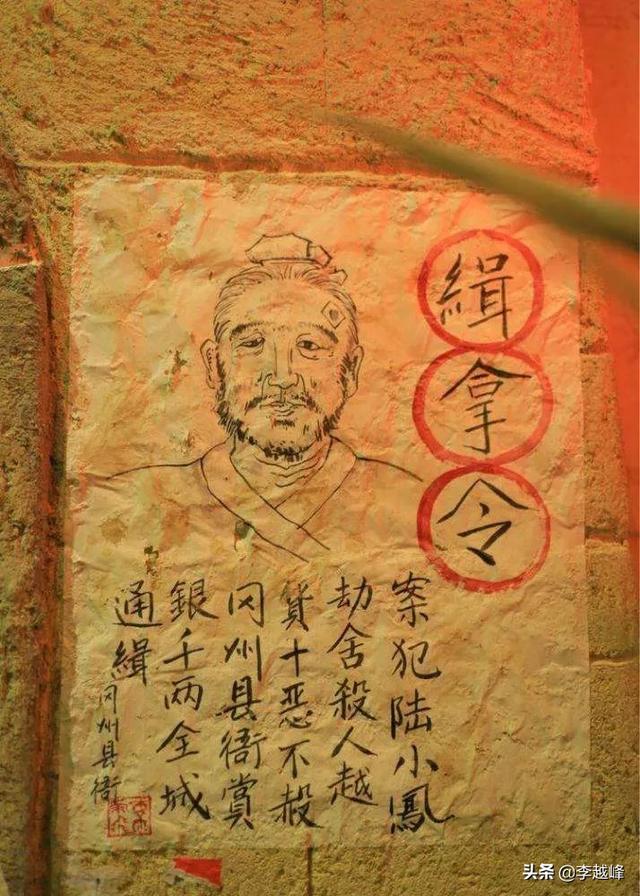 緝拿令
案犯陆小鳳
劫舍殺人越
貨十恶不赦
冈州县衙賞
銀千两全城
通緝
冈州县衙
头条 @李越峰